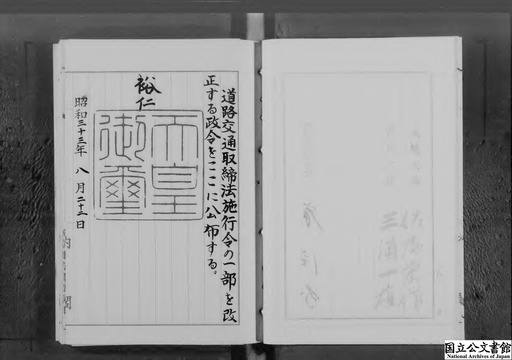 道路交通取締法施行令の一部を改
正する政令をここに公布する。
裕仁
天皇
御璽
昭和三十三年八月二十二日
国立公文書館
National Archives of Japan